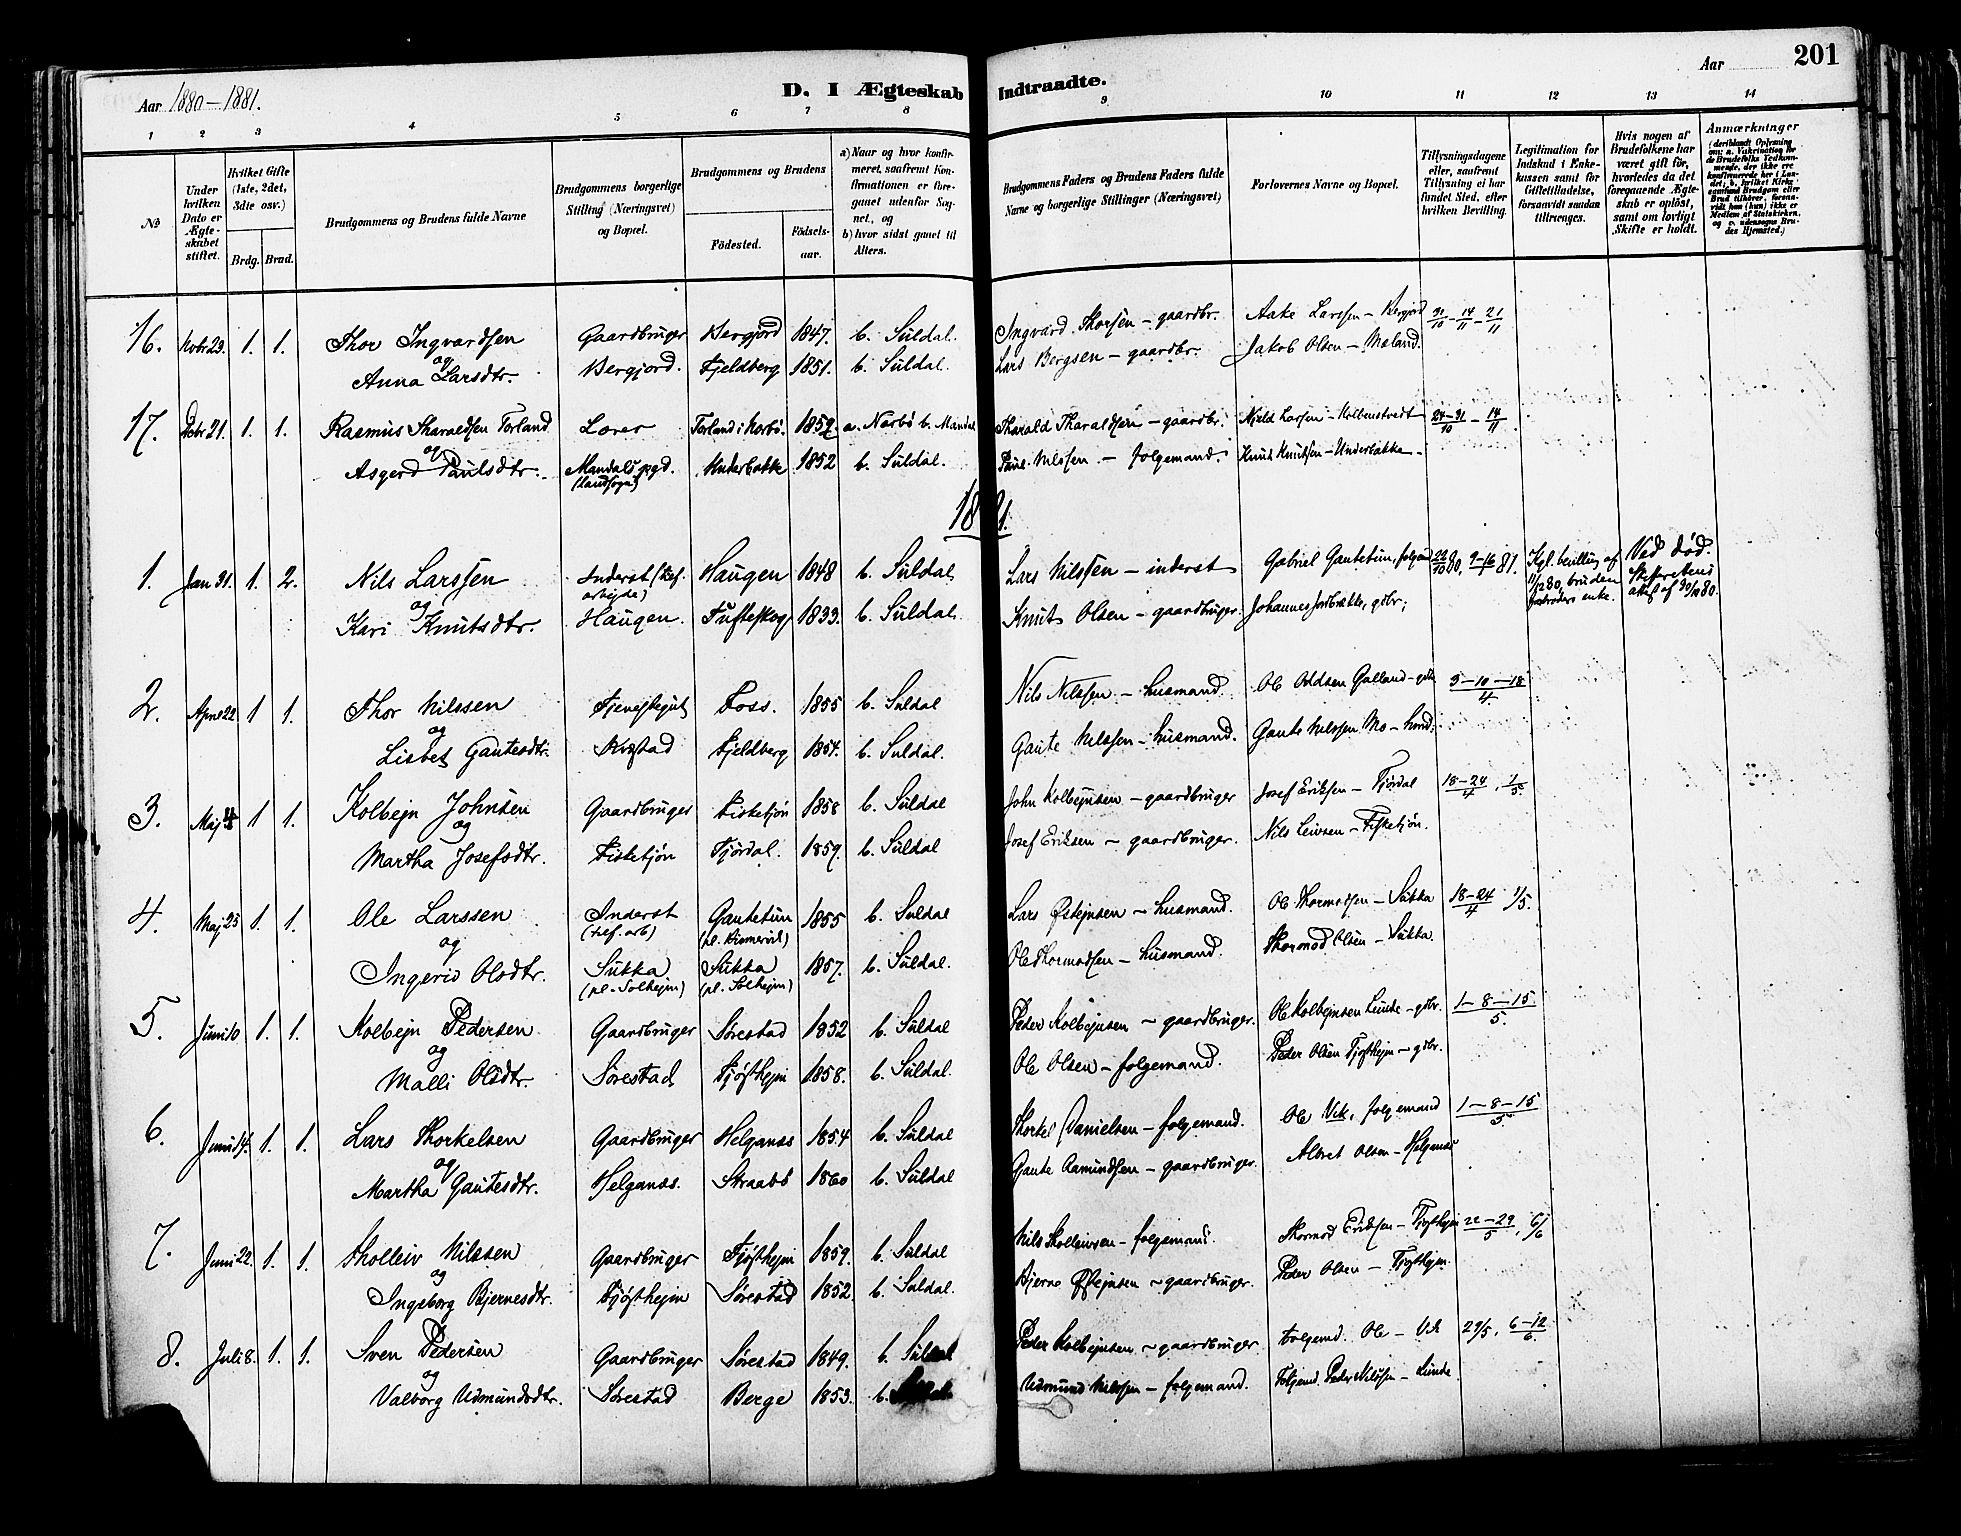 Aar 1880–1881.
D. I Ægteskab Indtraadte.
Aar
201
1 2 3 4 5 6 7 8 9 10 11 12 13 14
№
Under hvilken Dato er Ægteskabet stiftet.
Hvilket Gifte (1ste, 2det, 3die osv.)
Brdg. Brud.
Brudgommens og Brudens fulde Navne
Brudgommens borgerlige Stilling (Næringsvei) og Bopæl.
Brudgommens og Brudens
Fødested.
Fødselsaar.
a) Naar og hvor konfirmeret, saafremt Konfirmationen er foreganet udenfor Sognet, og
b) hvor sidst ganet til Alters.
Brudgommens Faders og Brudens Faders fulde Navne og borgerlige Stillinger (Næringsvei)
Forlovernes Navne og Bopæl.
Tillysningsdagene eller, saafremt Tillysning ei har fundet Sted, efter hvilken Bevilling.
Legitimation for Indskud i Enkekassen samt for Giftetilladelse, forsaavidt saadan tiltrænges.
Hvis nogen af Brudefolkene har været gift før, hvorledes da det foregaaende Ægteskab er opløst, samt om lovligt Skifte er holdt.
Anmærkninger
16. Novbr 23. 1. 1. Thor Ingvardsen Gaardbruger Bergjord 1847. b. Süldal. Ingvard Thorsen – gaardbr. Aake Larssen – Bergjord 31/10 – 14/11 – 21/11
og
Anna Larsdtr. Bergjord. Fjeldberg 1851. b. Süldal. Lars Bergsen – gaardbr. Jakob Olsen – Mæland.
17. Decbr 21. 1. 1. Rasmus Tharaldsen Torland Torland i Nærbø. 1852 a. Nærbø b. Mandal Tharald Tharaldsen – gaardbr. Njeld Larsen – Kolbenstvedt 24–31/10 – 14/11
og
Asgerd Paulsdtr. Mandals pgd. Underbakke 1852 b. Süldal. Paul Nilssen – folgemand. Knut Knutsen – Underbakke
(landsogn)
1881.
1. Jan 31. 1. 2. Nils Larssen Inderst Haugen 1848 b. Süldal Lars Nilssen – inderst Gabriel Gautetun, folgemd 80, 9–16/1 81. Kgl. bevilling af 11/12 80, bruden enke. Ved død.
og
Kari Knutsdtr. Haugen. Tufteskog 1833. b. Süldal. Knut Olsen – gaardbruger. Johannes
2. April 22 1 1. Thor Nilssen Foss. 1855 b. Süldal Nils Nilssen – husmand. Ole Oddsen Galland – gbr 3–10–18/4
og
Lisbet Gautesdtr. Fjeldberg 1854. b. Süldal. Gaute Nilssen – husmand. Gaute Nilssen Mo – husmd;
3. Maj 4 1 1. Kolbejn Johnsen Gaardbruger Fisketjøn 1858 b. Süldal John Kolbejnsen – gaardbruger Josef Eriksen – Fjørdal 18–24/4, 1/5
og
Martha Josefsdtr. Fisketjøn Fjørdal. 1859. b. Süldal Josef Eriksen – gaardbruger. Nils Leivsen – Fisketjøn.
4. Maj 25 1. 1. Ole Larssen Inderst Gautetün 1855 b. Süldal Lars Østejnsen – husmand. Ole Thormodsen – Sukka 18–24/4 1/5.
og
Ingerid Olsdtr. Sukka Sukka 1857. b. Süldal. Ole Thormodsen – husmand. Thormod Olsen – Sukka.
(pl. Solhejm) (pl. Solhejm)
5. Juni 10 1. 1. Kolbejn Pedersen Gaardbruger Sørestad 1852 b. Süldal Peder Kolbejnsen – gaardbruger. Ole Kolbejnsen Lunde – gbr. 1–8–15/5.
og
Malli Olsdtr. Sørestad Fjøsthejm 1858. b. Süldal. Ole Olsen – folgemand. Peder Olsen Fjøsthejm – gbr.
6. Juni 14. 1. 1. Lars Thorkelsen Gaardbruger Helganæs 1854 b. Süldal Thorkel Danielsen – folgemand. Ole Vik, folgemand 1–8–15/5
og
Martha Gautesdtr. Helganæs. Straabø 1860 b. Süldal Gaute Aamundsen – gaardbruger. Albret Olsen – Helganæs
7. Juni 22. 1. 1. Tholleiv Nilssen Gaardbruger Fjøsthejm 1859. b. Süldal Nils Tholleivsen – folgemand. Thormod Eriksen – Fjøsthejm 22–29/5, 6/6
og
Ingeborg Bjernesdtr. Fjøsthejm Sørestad 1852 b. Süldal. Bjerne Østejnsen – gaardbruger. Peder Olsen – Fjøsthejm
8. Juli 8. 1. 1. Sven Pedersen Gaardbruger Sørestad 1849. b. Süldal Peder Kolbejnsen – gaardbruger Folgemd. Ole – Vik 29/5, 6–12/6.
og
Valborg Udmundsdtr. Sørestad Berge 1853. b. Süldal Udmund Nilssen – folgemand. Folgemd. Peder Nilssen – Lunde